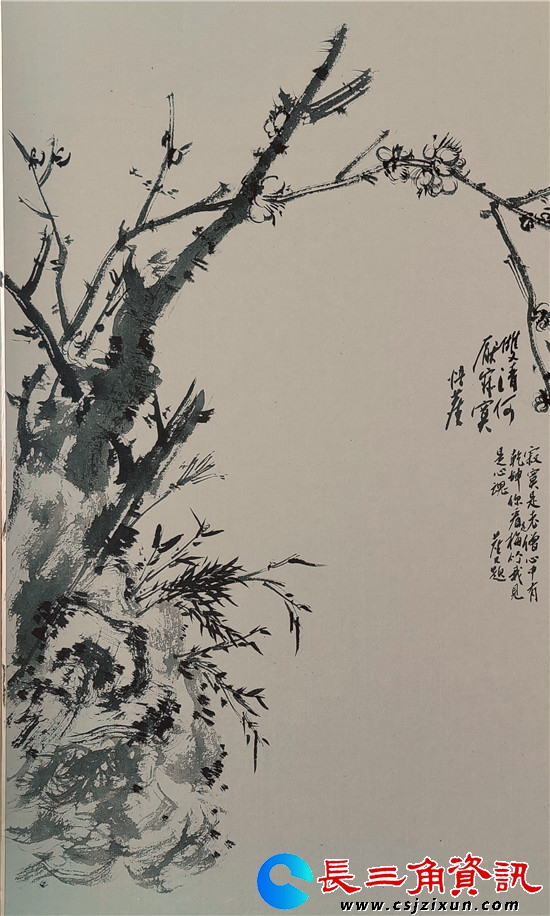 雙清何
厭寂寞
悟崖
寂寞是老僧心中有
乾坤你看梅竹我見
是心魂
崖又題
長三角資訊
www.csjzixun.com